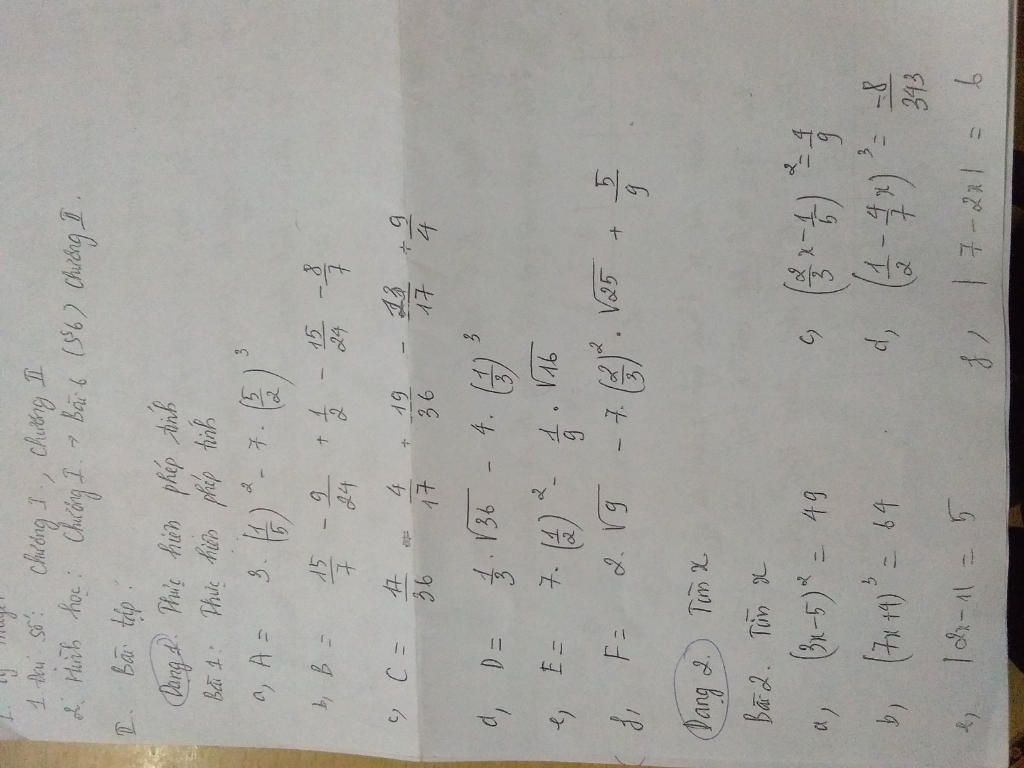 1. Đại số: Chương I, Chương II
2. Hình học: Chương I → Bài 6 (SS6) Chương II.
II. Bài tập:
Dạng 1. Thực hiện phép tính
Bài 1: Thực hiện phép tính
a, A = 3.(1/5)² - 7.(5/2)³
b, B = 15/7 - 9/24 + 1/2 - 15/24 - 8/7
c, C = 17/36 - 4/17 + 19/36 - 13/17 + 9/4
d, D = 1/3.√36 - 4.(1/3)³
e, E = 7.(1/2)² - 1/9.√16
f, F = 2.√9 - 7.(2/3)².√25 + 5/9
Dạng 2. Tìm x
Bài 2. Tìm x
a, (3x-5)² = 49 c, (2/3x - 1/5)² = 4/9
b, (7x+4)³ = 64 d, (1/2 - 4/7x)³ = -8/343
e, |2x-1| = 5 f, |7-2x| = 6